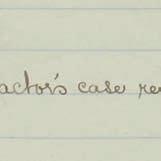 actor's case re